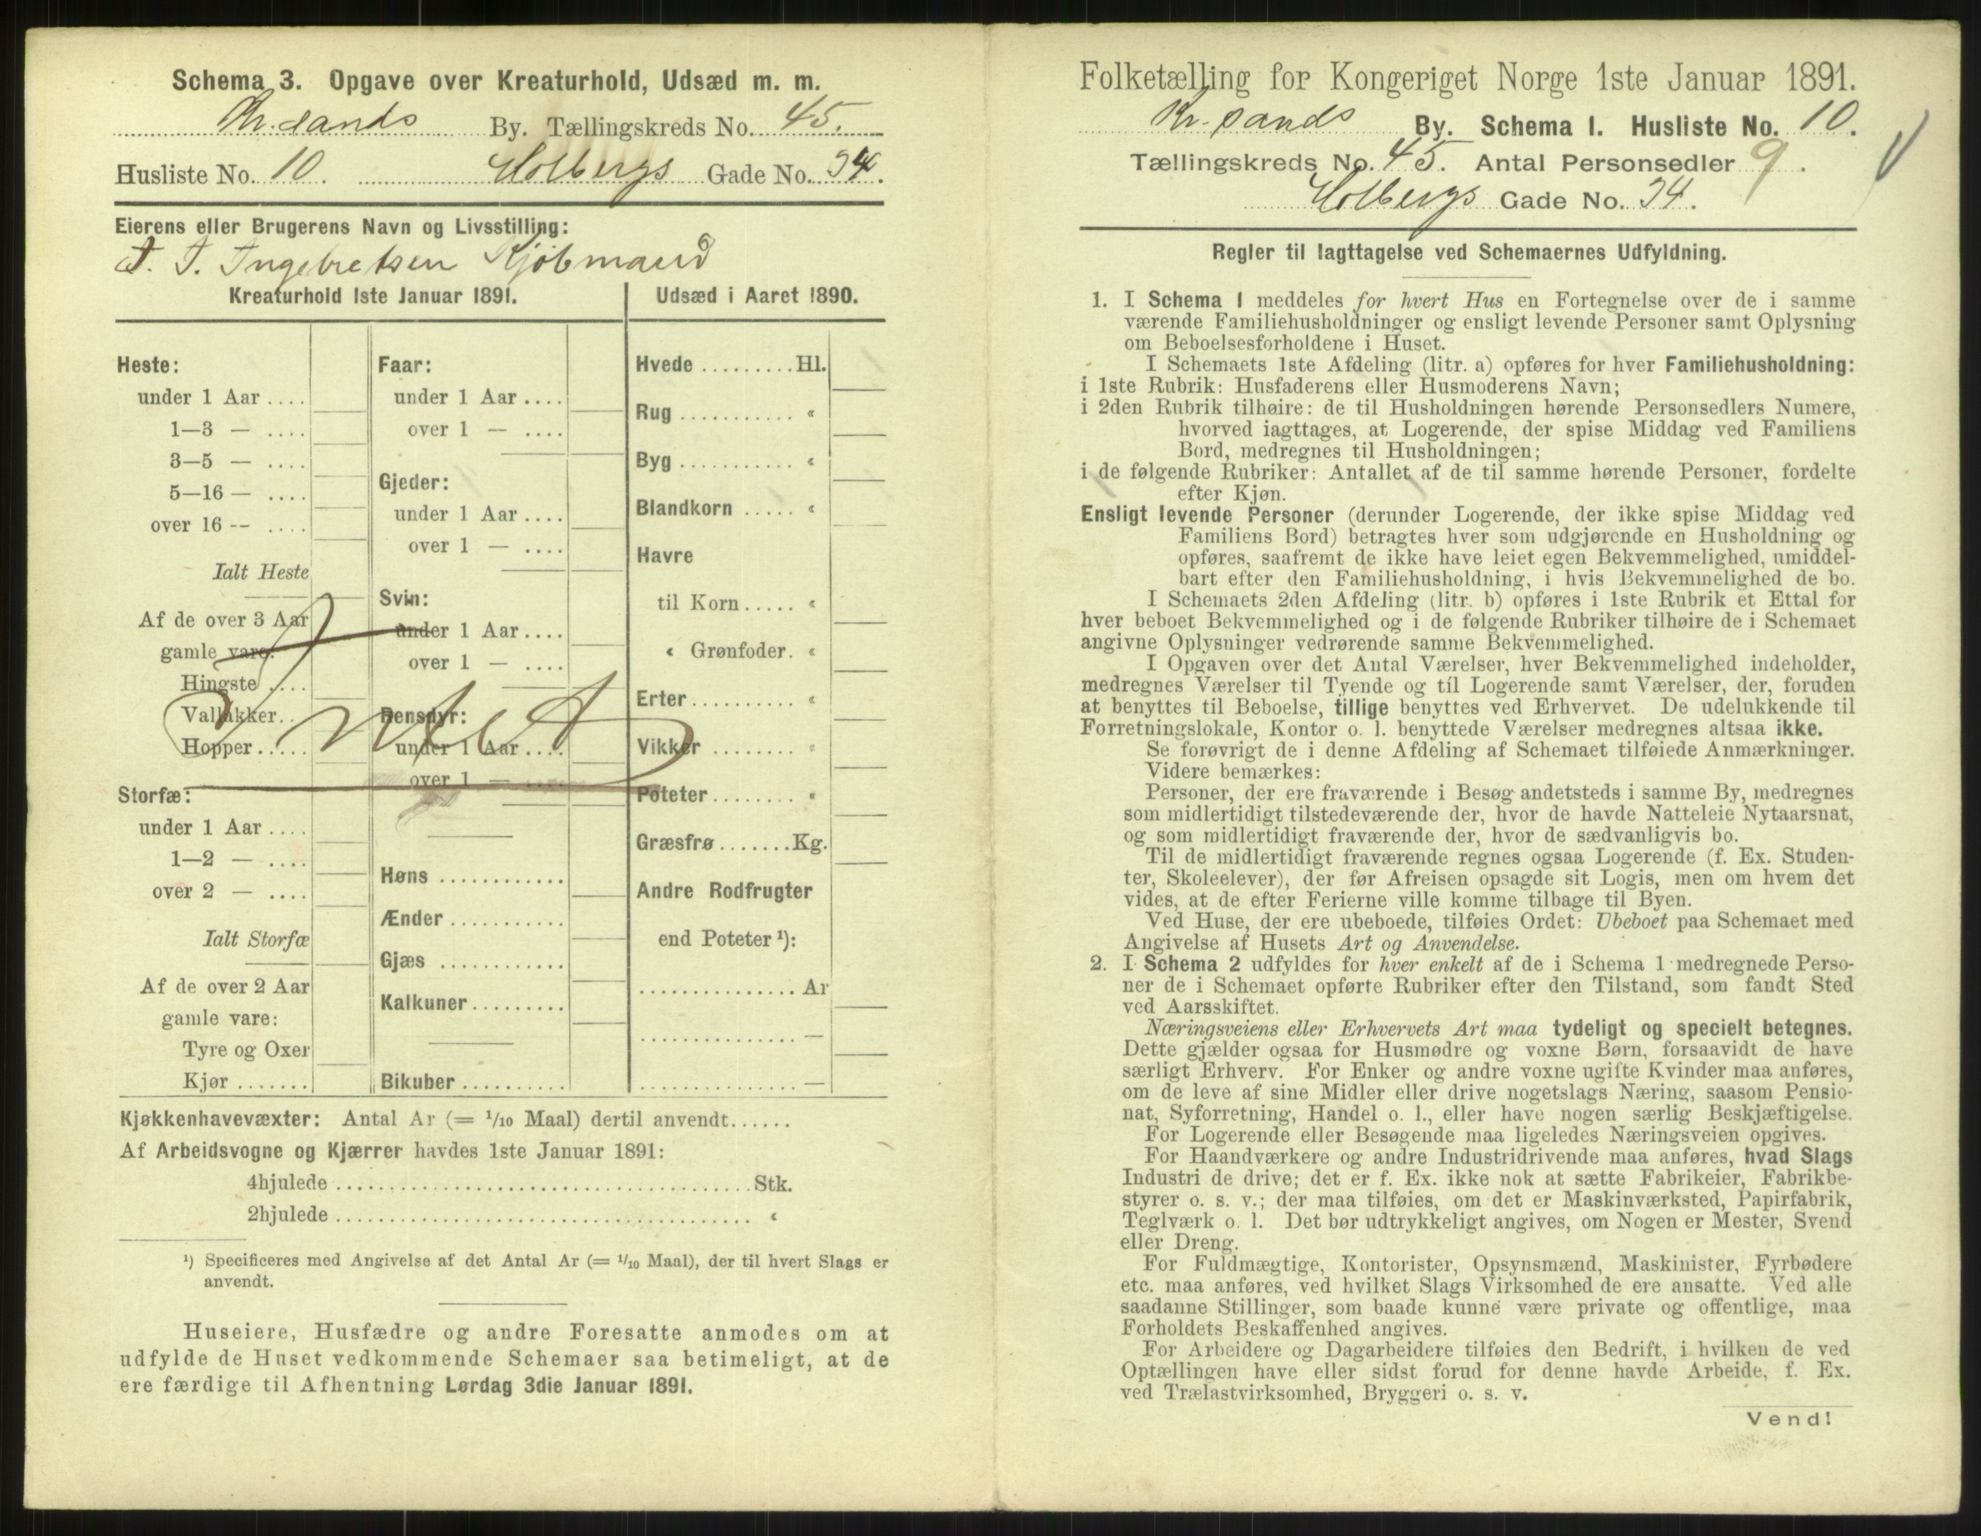 Schema 3. Opgave over Kreaturhold, Udsæd m. m.
Kr.sands By. Tællingskreds No. 45.
Husliste No. 10. Holbergs Gade No. 34.
Eierens eller Brugerens Navn og Livsstilling:
T. T. Ingebretsen Kjøbmand
Kreaturhold 1ste Januar 1891.
Heste:
under 1 Aar ....
1—3 — ....
3—5 — ....
5—16 — ....
over 16 -- ....
Ialt Heste
Af de over 3 Aar
gamle vare:
Hingste ....
Vallakker..
Hopper .....
Storfæ:
under 1 Aar ....
1—2 — ....
over 2 — ....
Ialt Storfæ
Af de over 2 Aar
gamle vare:
Tyre og Oxer
Kjør .......
Faar:
under 1 Aar ....
over 1 — ....
Gjeder:
under 1 Aar ....
over 1 — ....
Svin:
under 1 Aar ....
over 1 — ....
Rensdyr:
under 1 Aar ....
over 1 — ....
Intet
Høns ............
Ænder ...........
Gjæs ............
Kalkuner .........
Bikuber ..........
Udsæd i Aaret 1890.
Hvede ......... Hl.
Rug ........... «
Byg ........... «
Blandkorn ..... «
Havre
til Korn ..... «
« Grønfoder. «
Erter ......... «
Vikker ........ «
Poteter ........ «
Græsfrø ....... Kg.
Andre Rodfrugter
end Poteter ¹):
................ Ar
................ —
................ —
Kjøkkenhavevæxter: Antal Ar (= 1/10 Maal) dertil anvendt......
Af Arbeidsvogne og Kjærrer havdes 1ste Januar 1891:
4hjulede ........................................ Stk.
2hjulede ........................................ «
¹) Specificeres med Angivelse af det Antal Ar (= 1/10 Maal), der til hvert Slags er
anvendt.
Huseiere, Husfædre og andre Foresatte anmodes om at
udfylde de Huset vedkommende Schemaer saa betimeligt, at de
ere færdige til Afhentning Lørdag 3die Januar 1891.
Folketælling for Kongeriget Norge 1ste Januar 1891.
Kr.sands By. Schema I. Husliste No. 10.
Tællingskreds No. 45. Antal Personsedler 9.
Holbergs Gade No. 34.
Regler til Iagttagelse ved Schemaernes Udfyldning.
1. I Schema I meddeles for hvert Hus en Fortegnelse over de i samme
værende Familiehusholdninger og ensligt levende Personer samt Oplysning
om Beboelsesforholdene i Huset.
I Schemaets 1ste Afdeling (litr. a) opføres for hver Familiehusholdning:
i 1ste Rubrik: Husfaderens eller Husmoderens Navn;
i 2den Rubrik tilhøire: de til Husholdningen hørende Personsedlers Numere,
hvorved iagttages, at Logerende, der spise Middag ved Familiens
Bord, medregnes til Husholdningen;
i de følgende Rubriker: Antallet af de til samme hørende Personer, fordelte
efter Kjøn.
Ensligt levende Personer (derunder Logerende, der ikke spise Middag ved
Familiens Bord) betragtes hver som udgjørende en Husholdning og
opføres, saafremt de ikke have leiet egen Bekvemmelighed, umiddel-
bart efter den Familiehusholdning, i hvis Bekvemmelighed de bo.
I Schemaets 2den Afdeling (litr. b) opføres i 1ste Rubrik et Ettal for
hver beboet Bekvemmelighed og i de følgende Rubriker tilhøire de i Schemaet
angivne Oplysninger vedrørende samme Bekvemmelighed.
I Opgaven over det Antal Værelser, hver Bekvemmelighed indeholder,
medregnes Værelser til Tyende og til Logerende samt Værelser, der, foruden
at benyttes til Beboelse, tillige benyttes ved Erhvervet. De udelukkende til
Forretningslokale, Kontor o. l. benyttede Værelser medregnes altsaa ikke.
Se forøvrigt de i denne Afdeling af Schemaet tilføiede Anmærkninger.
Videre bemærkes:
Personer, der ere fraværende i Besøg andetsteds i samme By, medregnes
som midlertidigt tilstedeværende der, hvor de havde Natteleie Nytaarsnat,
og som midlertidigt fraværende der, hvor de sædvanligvis bo.
Til de midlertidigt fraværende regnes ogsaa Logerende (f. Ex. Studen-
ter, Skoleelever), der før Afreisen opsagde sit Logis, men om hvem det
vides, at de efter Ferierne ville komme tilbage til Byen.
Ved Huse, der ere ubeboede, tilføies Ordet: Ubeboet paa Schemaet med
Angivelse af Husets Art og Anvendelse.
2. I Schema 2 udfyldes for hver enkelt af de i Schema 1 medregnede Perso-
ner de i Schemaet opførte Rubriker efter den Tilstand, som fandt Sted
ved Aarsskiftet.
Næringsveiens eller Erhvervets Art maa tydeligt og specielt betegnes.
Dette gjælder ogsaa for Husmødre og voxne Børn, forsaavidt de have
særligt Erhverv. For Enker og andre voxne ugifte Kvinder maa anføres,
om de leve af sine Midler eller drive nogetslags Næring, saasom Pensio-
nat, Syforretning, Handel o. l., eller have nogen særlig Beskjæftigelse.
For Logerende eller Besøgende maa ligeledes Næringsveien opgives.
For Haandværkere og andre Industridrivende maa anføres, hvad Slags
Industri de drive; det er f. Ex. ikke nok at sætte Fabrikeier, Fabrikbe-
styrer o. s. v.; der maa tilføies, om det er Maskinværksted, Papirfabrik,
Teglværk o. l. Det bør udtrykkeligt angives, om Nogen er Mester, Svend
eller Dreng.
For Fuldmægtige, Kontorister, Opsynsmænd, Maskinister, Fyrbødere
etc. maa anføres, ved hvilket Slags Virksomhed de ere ansatte. Ved alle
saadanne Stillinger, som baade kunne være private og offentlige, maa
Forholdets Beskaffenhed angives.
For Arbeidere og Dagarbeidere tilføies den Bedrift, i hvilken de ved
Optællingen have eller sidst forud for denne havde Arbeide, f. Ex.
ved Trælastvirksomhed, Bryggeri o. s. v.
Vend!